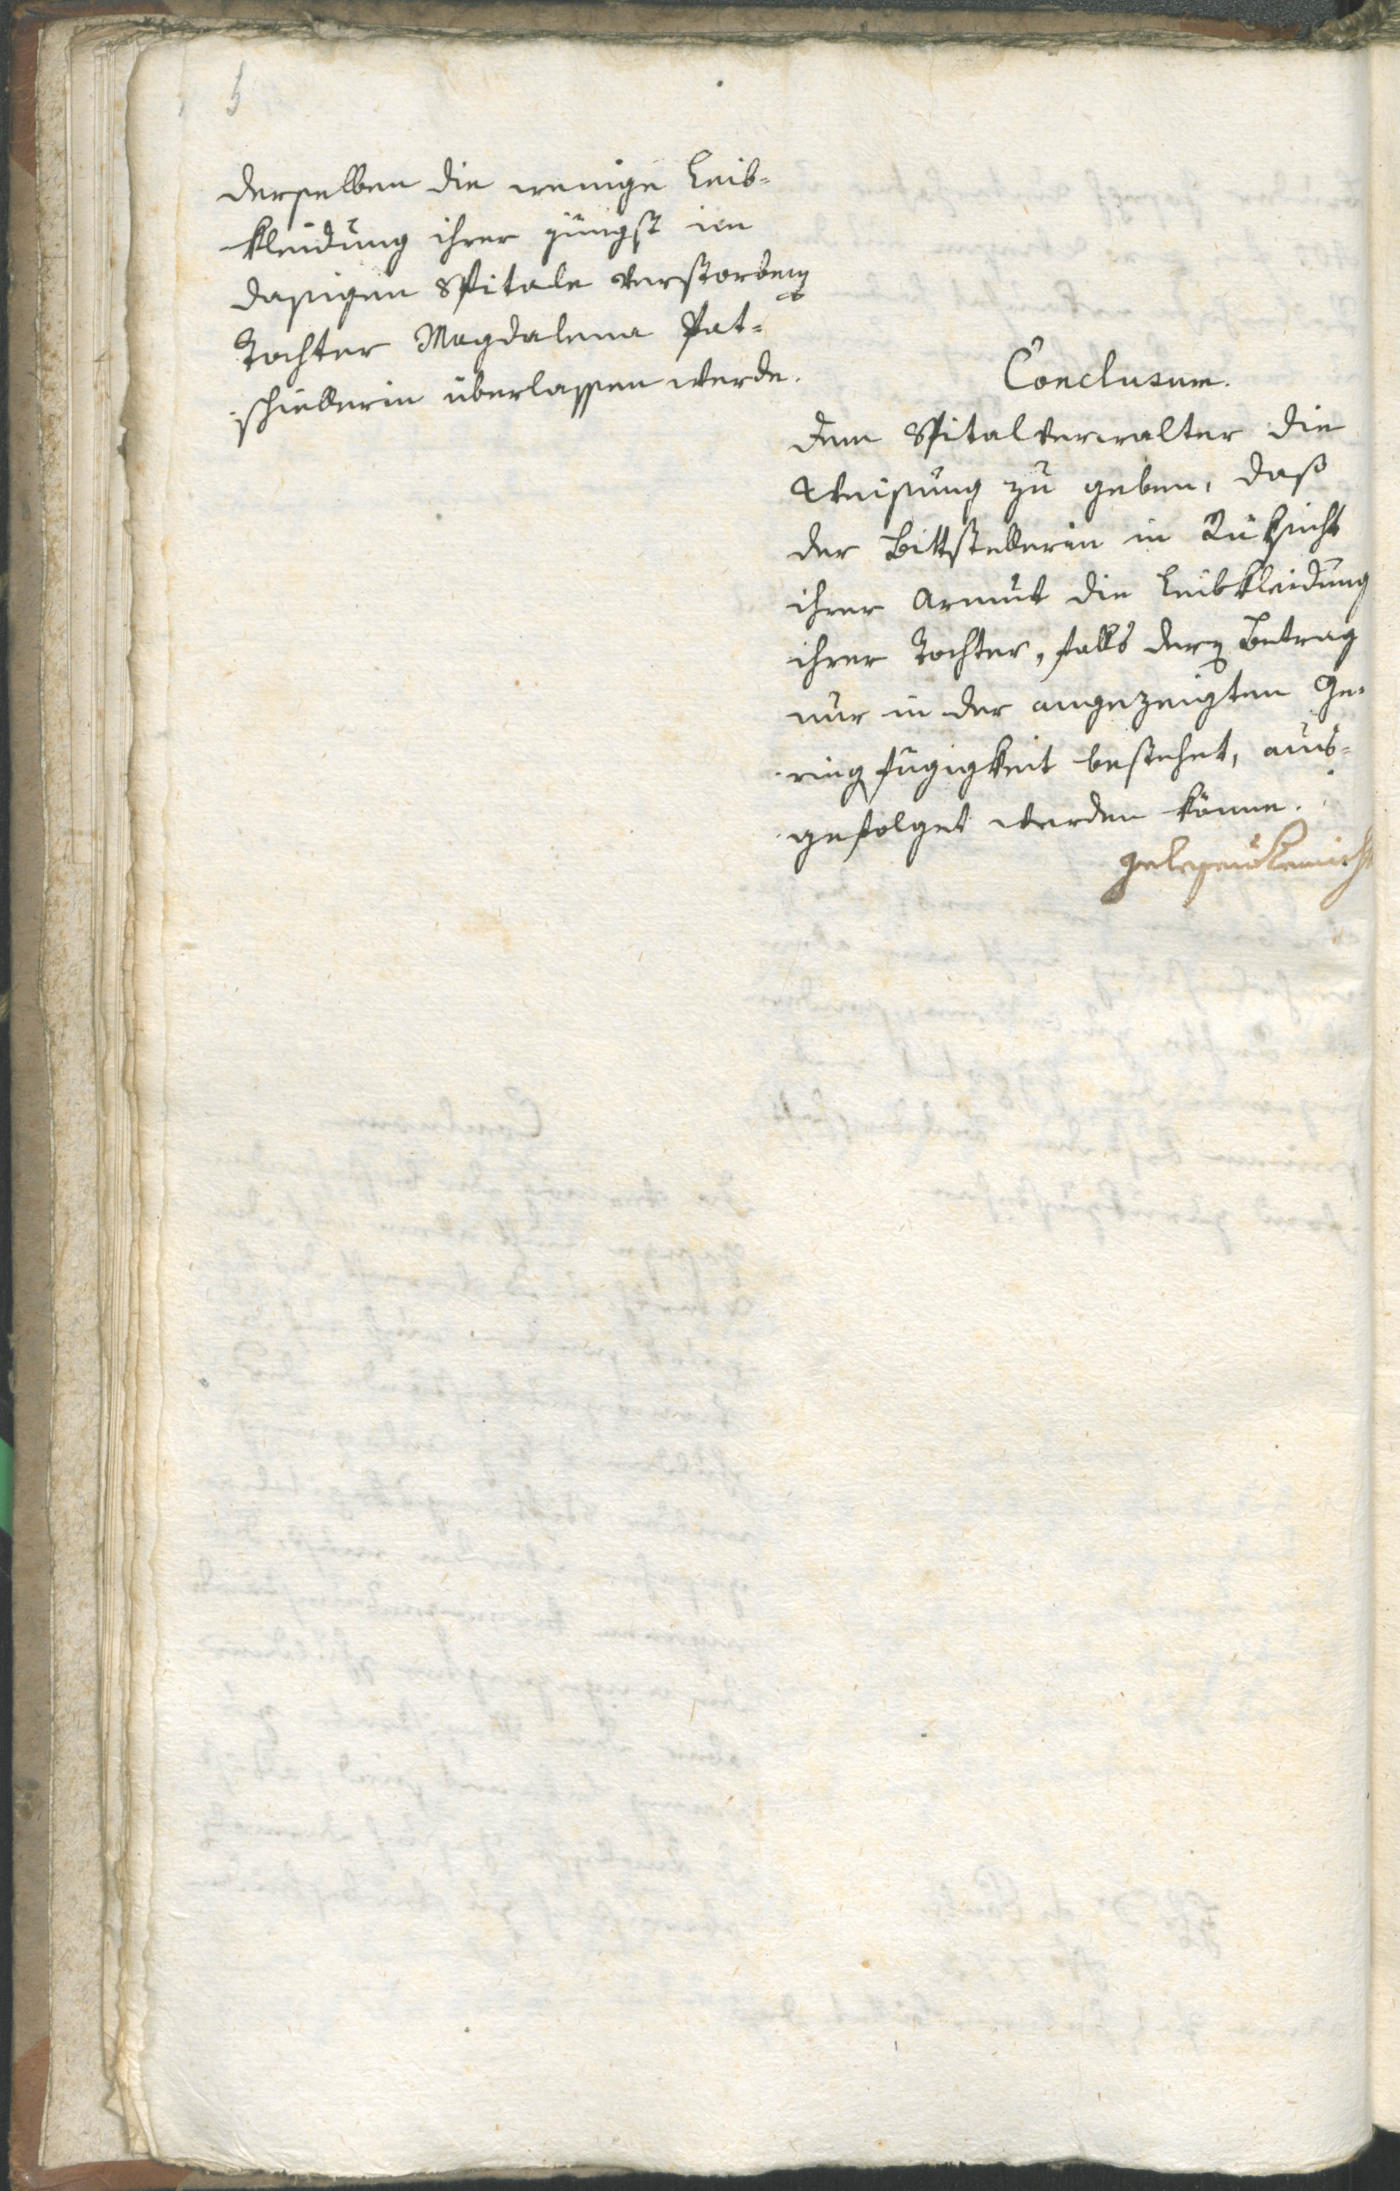 derselben die wenige Leib-
kleidung ihrer jüngst im
dasigen Spitale verstorbenen
Tochter Magdalena Pat-
schiellerin überlassen werde.
Conclusum.
Dem Spitalverwalter die
Weisung zu geben, daß
der Bittstellerin in Rüksicht
ihrer Armut die Leibkleidung
ihrer Tochter, falls deren Betrag
nur in der angezeigten Ge-
ringfügigkeit bestehet, aus-
gefolget werden könne.